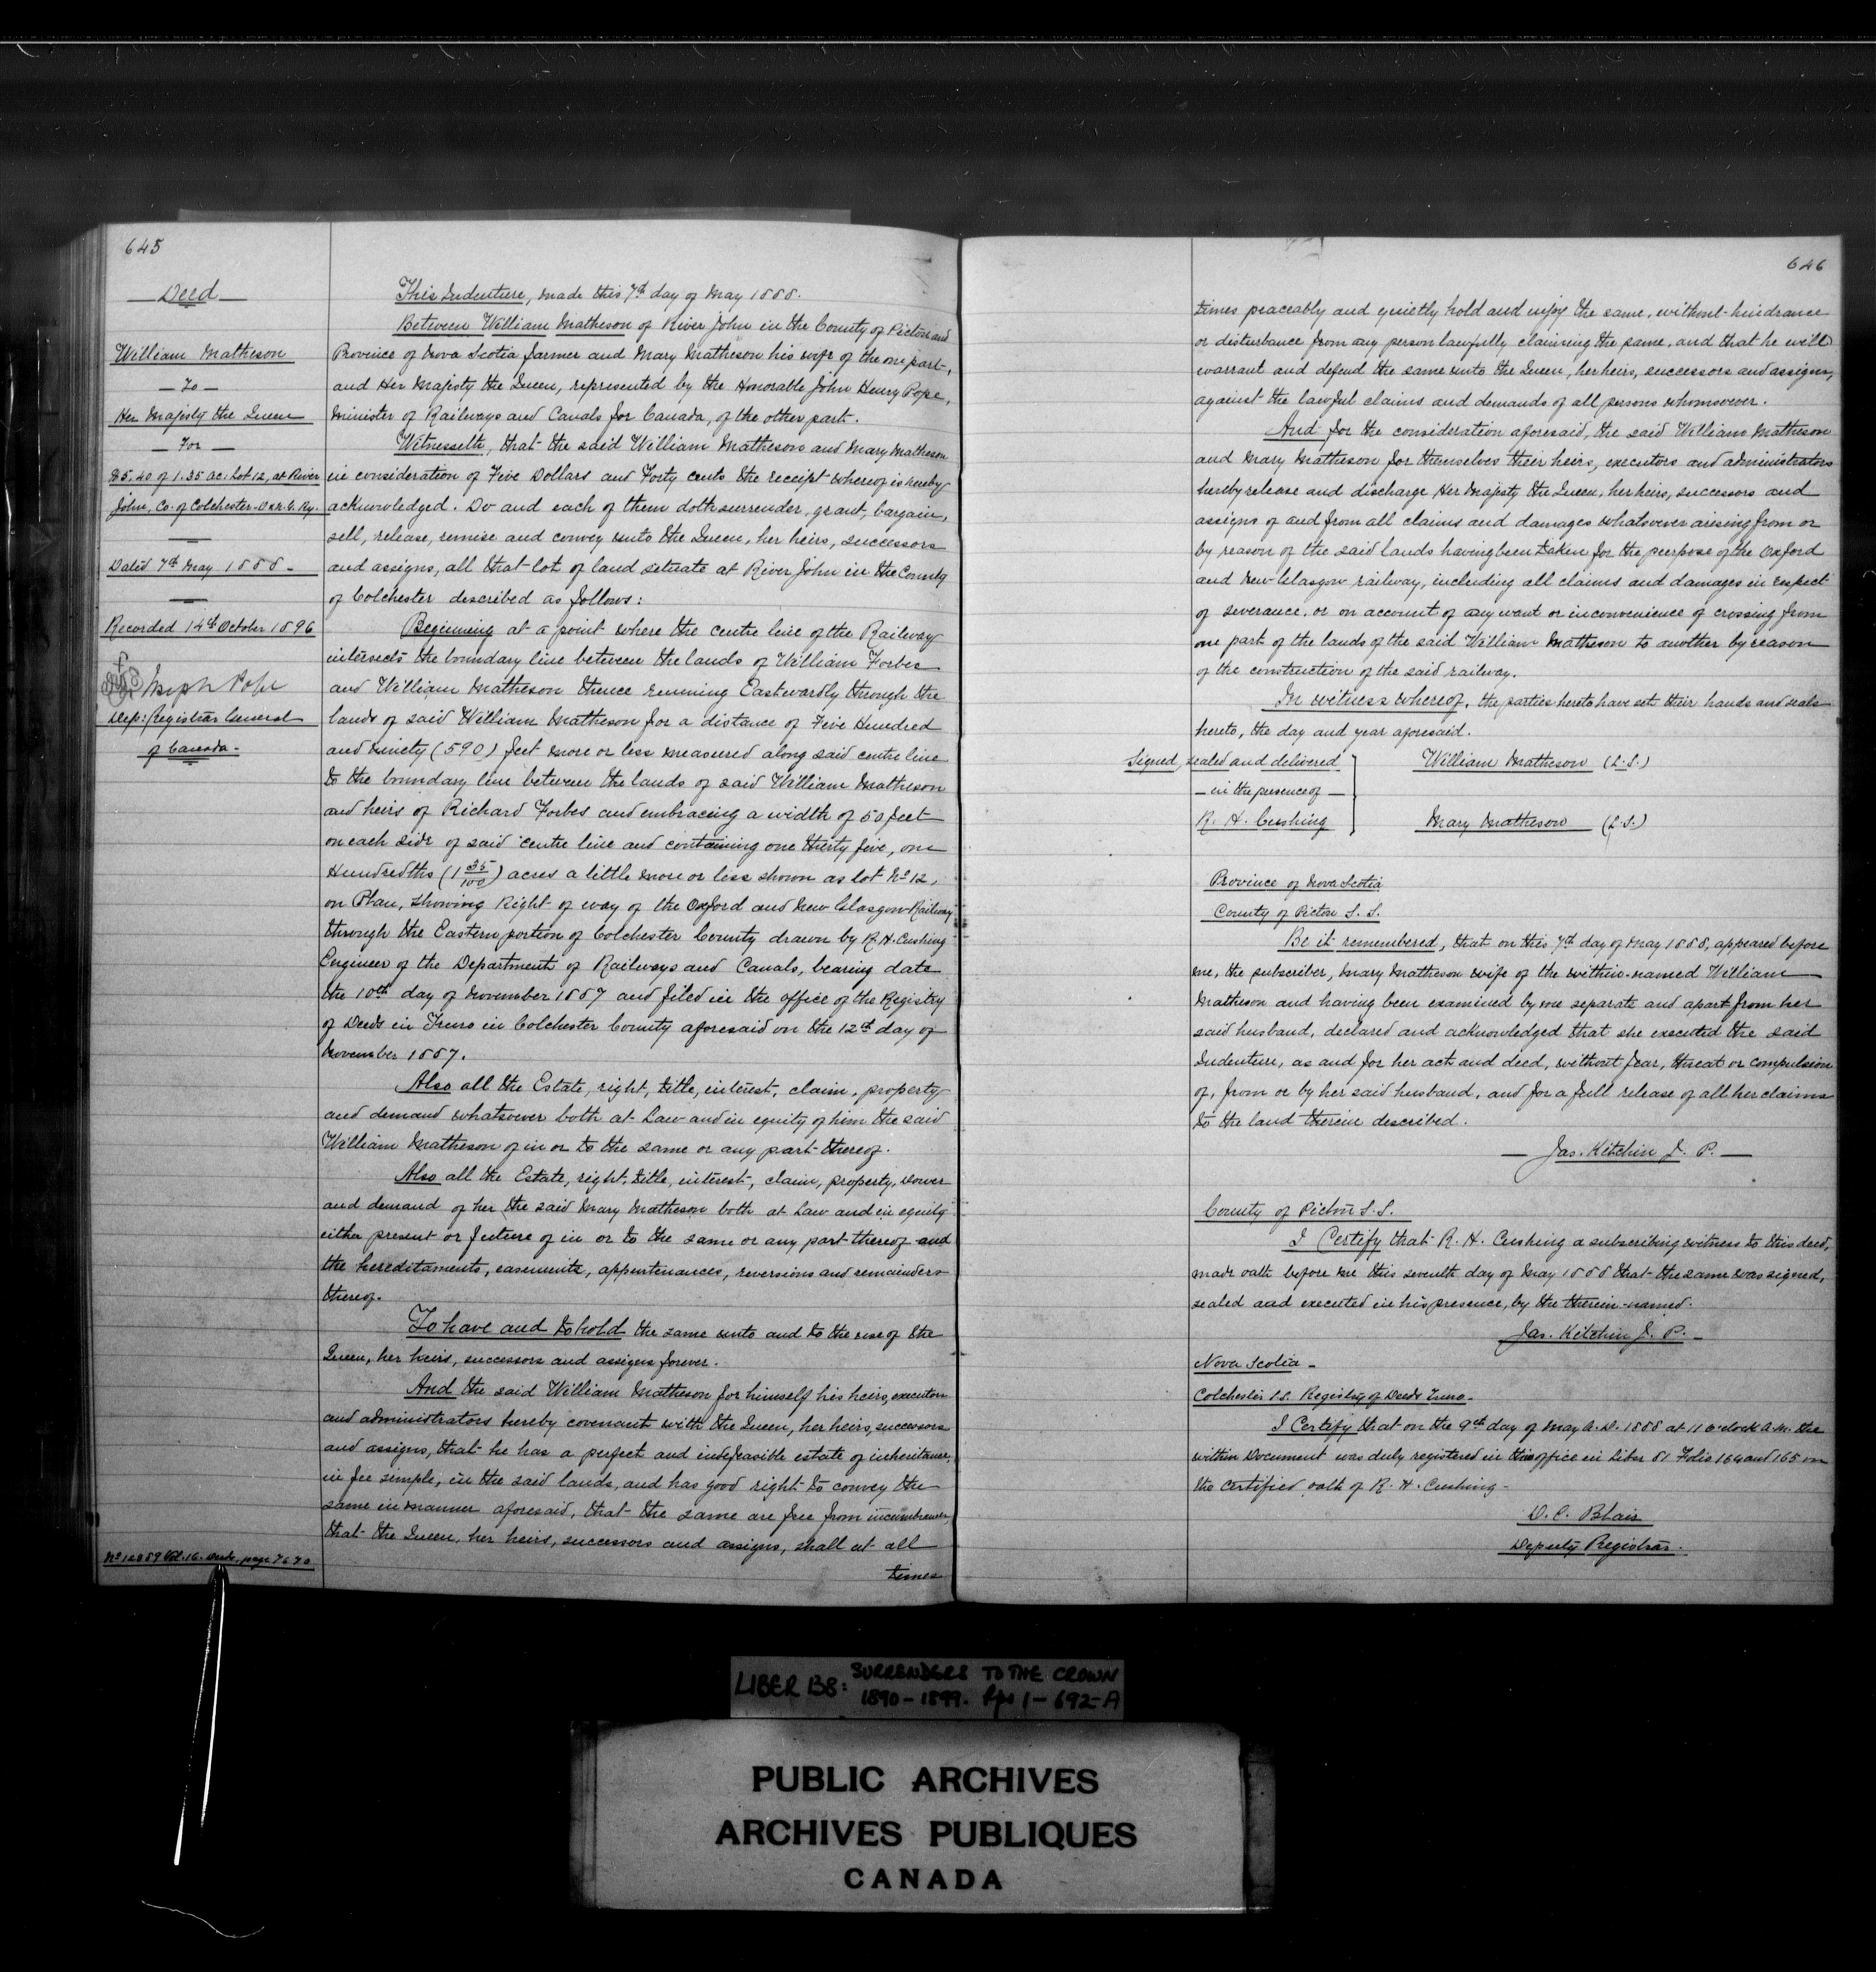 645
Deed
William Matheson
— To —
Her Majesty the Queen
— For —
$5.40 of 1.35 ac: Lot 12, at River
John, Co. of Colchester - Ox. & Ry.
Dated 7th May 1888 -
Recorded 14th October 1896
Joseph Pope
Dep: Registrar General
of Canada -
No 12859 Vol. 16. Deeds, page
This Indenture, made this 7th day of May 1888.
Between William Matheson of River John in the County of Pictou and
Province of Nova Scotia farmer and Mary Matheson his wife of the one part,
and Her Majesty the Queen, represented by the Honorable John Henry Pope,
Minister of Railways and Canals for Canada, of the other part.
Witnesseth, that the said William Matheson and Mary Matheson
in consideration of Five Dollars and Forty cents the receipt whereof is hereby
acknowledged. Do and each of them doth surrender, grant, bargain,
sell, release, remise and convey unto the Queen, her heirs, successors
and assigns, all that lot of land situate at River John in the County
of Colchester described as follows:
Beginning at a point where the centre line of the Railway
intersects the boundary line between the lands of William Forbes
and William Matheson thence running Eastwardly through the
lands of said William Matheson for a distance of Five Hundred
and ninety (590) feet more or less measured along said centre line
to the boundary line between the lands of said William Matheson
and heirs of Richard Forbes and embracing a width of 50 feet
on each side of said centre line and containing one thirty five, one
Hundredths (1 35/100) acres a little more or less shown as lot No 12,
on Plan, showing Right of way of the Oxford and New Glasgow Railway
through the Eastern portion of Colchester County drawn by R. H. Cushing
Engineer of the Department of Railways and Canals, bearing date
the 10th day of November 1887 and filed in the office of the Registry
of Deeds in Truro in Colchester County aforesaid on the 12th day of
November 1887.
Also all the Estate, right, title, interest, claim, property
and demand whatsoever both at Law and in equity of him the said
William Matheson of in or to the same or any part thereof.
Also all the Estate, right, title, interest, claim, property, dower
and demand of her the said Mary Matheson both at Law and in equity
either present or future of in or to the same or any part thereof and
the hereditaments, easements, appurtenances, reversions and remainders
thereof.
To have and to hold the same unto and to the use of the
Queen, her heirs, successors and assigns forever.
And the said William Matheson for himself his heirs, executors
and administrators hereby covenant with the Queen, her heirs, successors
and assigns, that he has a perfect and indefeasible estate of inheritance,
in fee simple, in the said lands, and has good right to convey the
same in manner aforesaid, that the same are free from incumbrances,
that the Queen, her heirs, successors and assigns, shall at all
times
646
times peaceably and quietly hold and enjoy the same, without hindrance
or disturbance from any person lawfully claiming the same, and that he will
warrant and defend the same unto the Queen, her heirs, successors and assigns,
against the lawful claims and demands of all persons whomsoever.
And for the consideration aforesaid, the said William Matheson
and Mary Matheson for themselves their heirs, executors and administrators
hereby release and discharge Her Majesty the Queen, her heirs, successors and
assigns of and from all claims and damages whatsoever arising from or
by reason of the said lands having been taken for the purpose of the Oxford
and New Glasgow railway, including all claims and damages in respect
of severance, or on account of any want or inconvenience of crossing from
one part of the lands of the said William Matheson to another by reason
of the construction of the said railway.
In witness whereof, the parties hereto have set their hands and seals
hereto, the day and year aforesaid.
Signed, sealed and delivered William Matheson (L.S.)
— in the presence of —
R. H. Cushing Mary Matheson (L.S.)
Province of Nova Scotia
County of Pictou S. S.
Be it remembered, that on this 7th day of May 1888, appeared before
me, the subscriber, Mary Matheson wife of the within-named William
Matheson and having been examined by me separate and apart from her
said husband, declared and acknowledged that she executed the said
Indenture, as and for her act and deed, without fear, threat or compulsion
of, from or by her said husband, and for a full release of all her claims
to the land therein described.
— Jas. Kitchin J. P. —
County of Pictou S.S.
I Certify that R. H. Cushing a subscribing witness to this deed,
made oath before me this seventh day of May 1888 that the same was signed,
sealed and executed in his presence, by the therein-named.
Jas. Kitchin J. P. -
Nova Scotia -
Colchester S.S. Registry of Deeds Truro -
I Certify that on the 9th day of May A. D. 1888 at 11 o'clock A. M. the
within Document was duly registered in this office in Liber 81 Folio 164 and 165 on
the certified oath of R. H. Cushing -
D. C. Blair
Deputy Registrar.
LIBER 138: SURRENDERS TO THE CROWN
1890-1899. Pps 1-692-A
PUBLIC ARCHIVES
ARCHIVES PUBLIQUES
CANADA